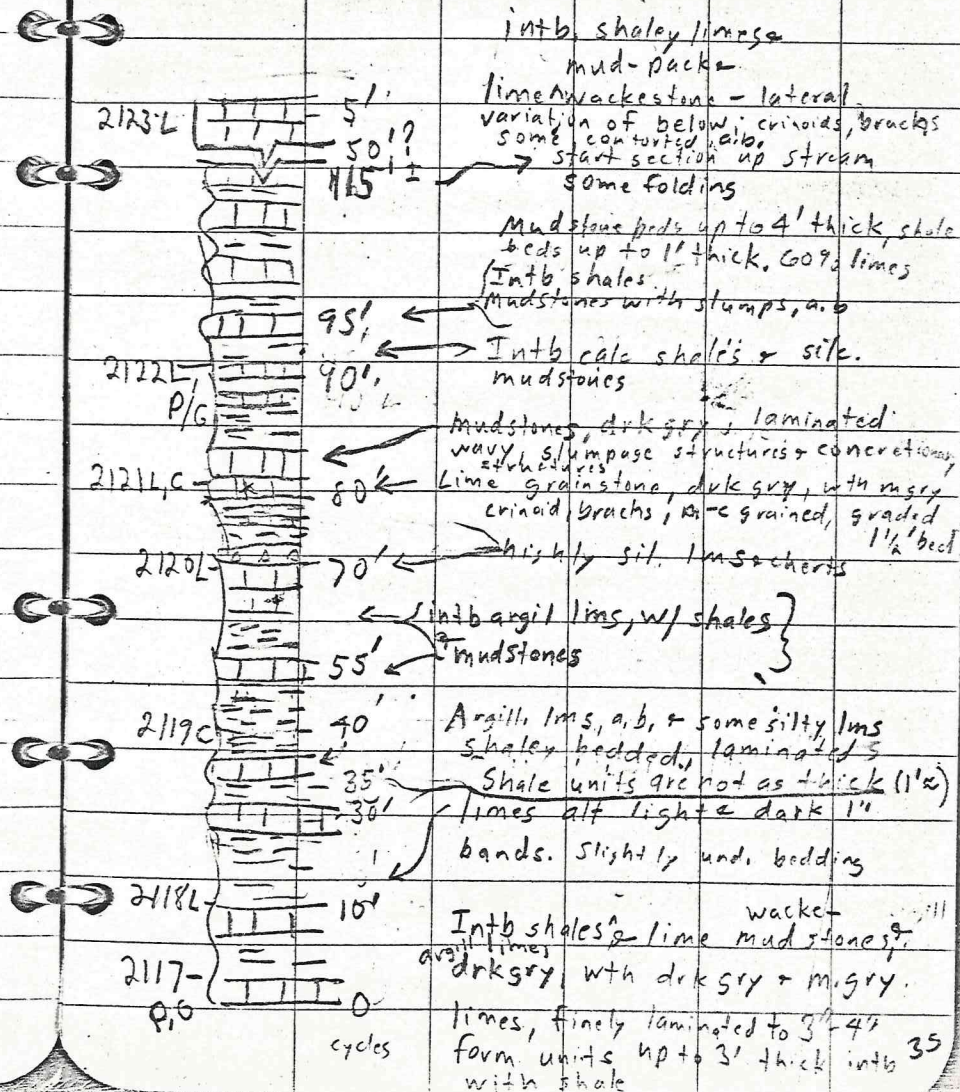 intb. shaley limes &
mud-pack &
lime ^ wackestone - lateral
variation of below; crinoids, brachs
some contorted, a.b.
5'
2123-L
50'?
start section up stream
115' ±
some folding
Mudstone beds up to 4' thick, shale
beds up to 1' thick. 60% limes
Intb shales
Mudstones with slumps, a.b
95'
Intb calc shales & silc.
mudstones
2122L
90'
P/G
Mudstones, drk gry, laminated
wavy, slumpage structures & concretionary
structures
2121L,C
80'
Lime grainstone, drk gry, wth mgry
crinoid, brachs, m-c grained, graded
1 1/2' bed
highly sil. lms & cherts
2120L
70'
intb argil lms, w/ shales
& mudstones
55'
2119C
40'
Argill. lms, a.b. & some silty lms
shaley bedded, laminated s
35'
Shale units are not as thick (1'±)
30'
limes alt light & dark 1"
bands. Slightly und. bedding
2118L
10'
wacke-
Intb shales & lime mudstones &
argill limes
drk gry, wth drk gry & m.gry.
2117-
P,G
0
limes, finely laminated to 3"-4"
cycles
form units up to 3' thick intb
35
with shale